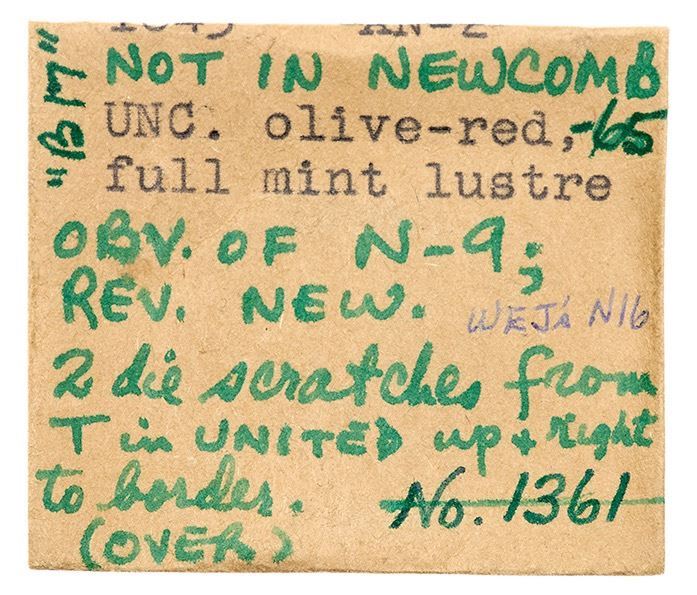 NOT IN NEWCOMB
"BM"
UNC. olive-red, -65
full mint lustre
OBV. OF N-9;
REV. NEW.
WEJ's N16
2 die scratches from
T in UNITED up + right
to border.
No. 1361
(OVER)